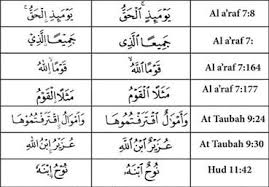 يَوْمَئِذٍ ۨالْحَقُّ يَوْمَئِذِ ۨالْحَقُّ Al a'raf 7:8
جَمِيعًا ۨالَّذِي جَمِيعًا ۨالَّذِي Al a'raf 7:
قَوْمًا ۨاللَّهُ قَوْمًا ۨاللَّهُ Al a'raf 7:164
مَثَلًا ۨالْقَوْمُ مَثَلًا ۨالْقَوْمُ Al a'raf 7:177
وَأَمْوَالٌ اقْتَرَفْتُمُوهَا وَأَمْوَالٌ ۨاقْتَرَفْتُمُوهَا At Taubah 9:24
عُزَيْرٌ ابْنُ اللَّهِ عُزَيْرٌ ۨابْنُ اللَّهِ At Taubah 9:30
نُوحٌ ابْنَهُ نُوحٌ ۨابْنَهُ Hud 11:42